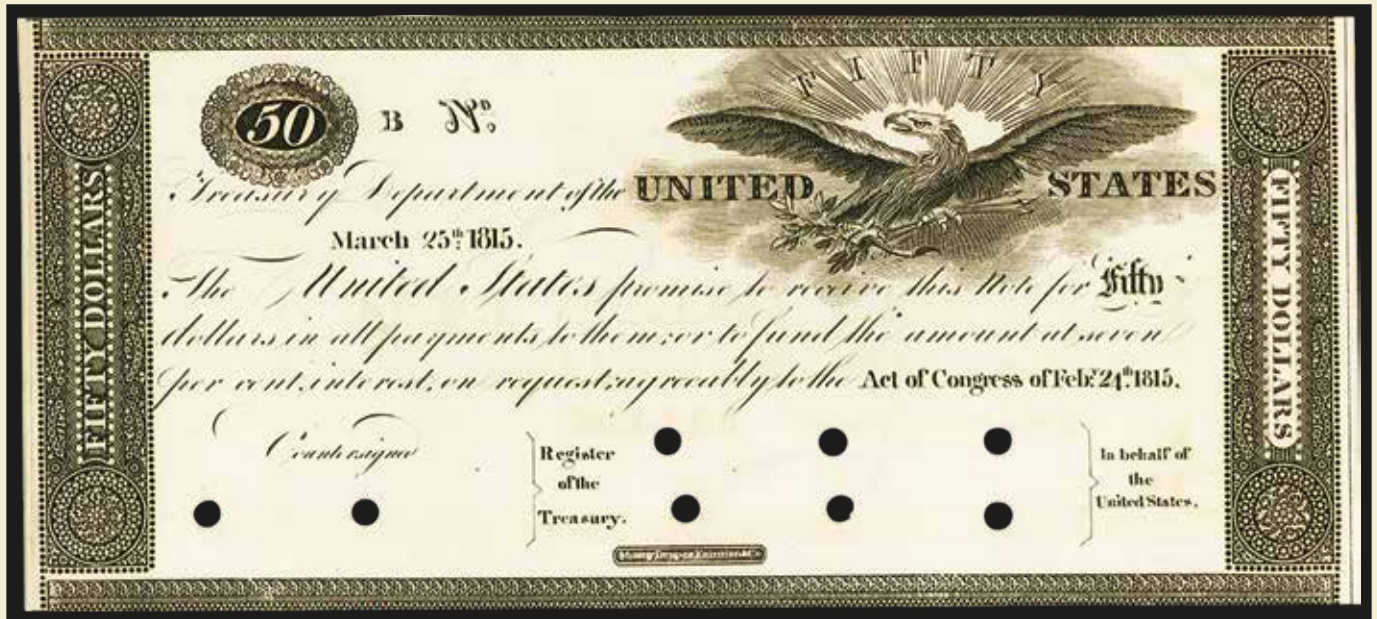 FIFTY
50 B Nº.
Treasury Department of the UNITED STATES
March 25th. 1815.
The United States promise to receive this Note for Fifty
dollars in all payments to them: or to fund the amount at seven
per cent. interest, on request, agreeably to the Act of Congress of Feby. 24th. 1815.
Countersigned
Register
of the
Treasury.
In behalf of
the
United States.
Murray Draper Fairman & Co
FIFTY DOLLARS
FIFTY DOLLARS